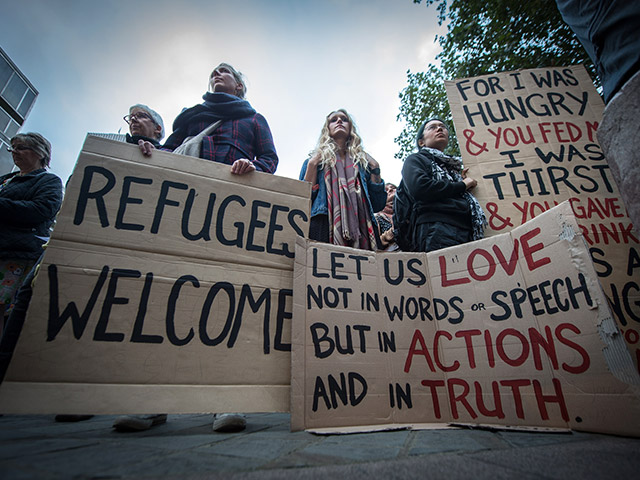 REFUGEES
WELCOME
LET US LOVE
NOT IN WORDS OR SPEECH
BUT IN ACTIONS
AND IN TRUTH.
FOR I WAS
HUNGRY
& YOU FED
I WAS
THIRST
& YOU GAVE